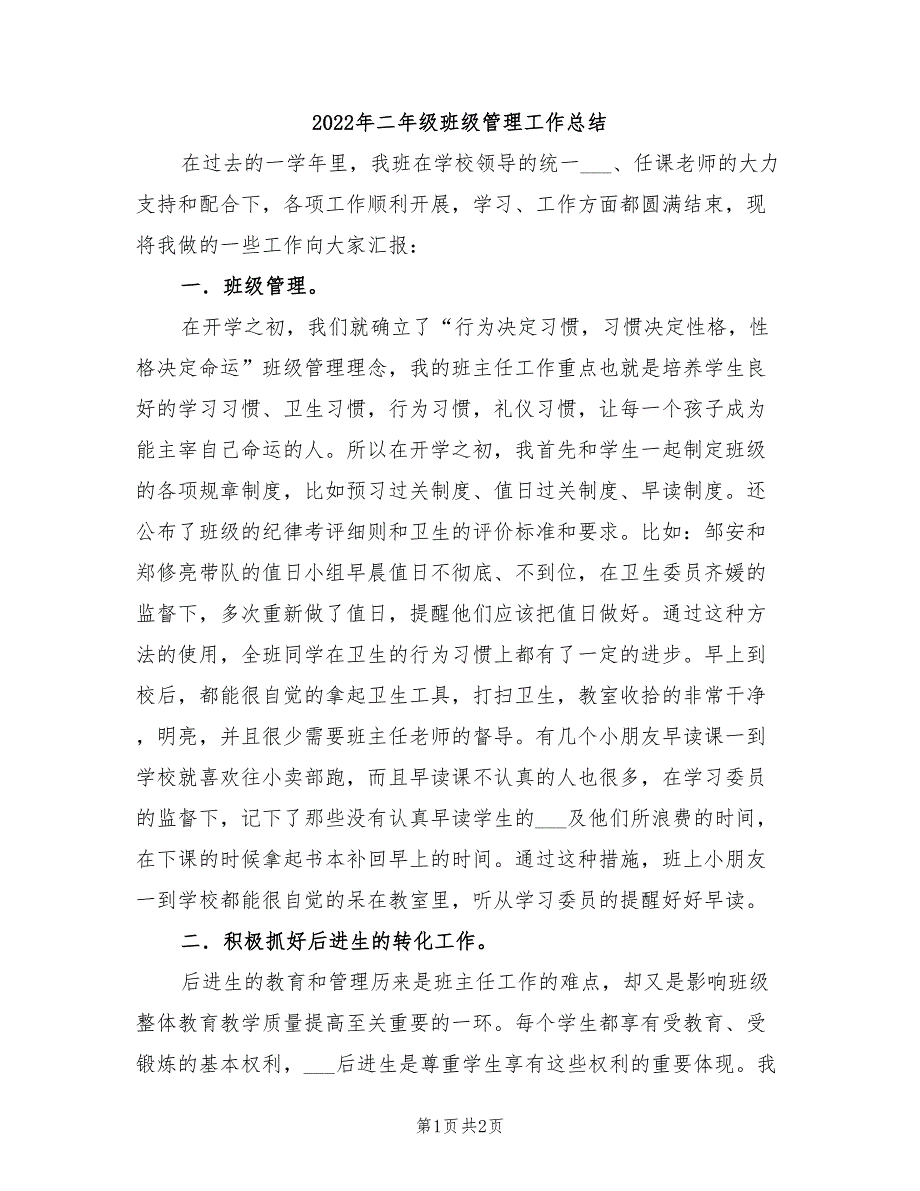 2022年二年级班级管理工作总结
在过去的一学年里，我班在学校领导的统一___、任课老师的大力
支持和配合下，各项工作顺利开展，学习、工作方面都圆满结束，现
将我做的一些工作向大家汇报：
一．班级管理。
在开学之初，我们就确立了“行为决定习惯，习惯决定性格，性
格决定命运”班级管理理念，我的班主任工作重点也就是培养学生良
好的学习习惯、卫生习惯，行为习惯，礼仪习惯，让每一个孩子成为
能主宰自己命运的人。所以在开学之初，我首先和学生一起制定班级
的各项规章制度，比如预习过关制度、值日过关制度、早读制度。还
公布了班级的纪律考评细则和卫生的评价标准和要求。比如：邹安和
郑修亮带队的值日小组早晨值日不彻底、不到位，在卫生委员齐媛的
监督下，多次重新做了值日，提醒他们应该把值日做好。通过这种方
法的使用，全班同学在卫生的行为习惯上都有了一定的进步。早上到
校后，都能很自觉的拿起卫生工具，打扫卫生，教室收拾的非常干净
，明亮，并且很少需要班主任老师的督导。有几个小朋友早读课一到
学校就喜欢往小卖部跑，而且早读课不认真的人也很多，在学习委员
的监督下，记下了那些没有认真早读学生的___及他们所浪费的时间，
在下课的时候拿起书本补回早上的时间。通过这种措施，班上小朋友
一到学校都能很自觉的呆在教室里，听从学习委员的提醒好好早读。
二．积极抓好后进生的转化工作。
后进生的教育和管理历来是班主任工作的难点，却又是影响班级
整体教育教学质量提高至关重要的一环。每个学生都享有受教育、受
锻炼的基本权利，___后进生是尊重学生享有这些权利的重要体现。我
第1页共2页